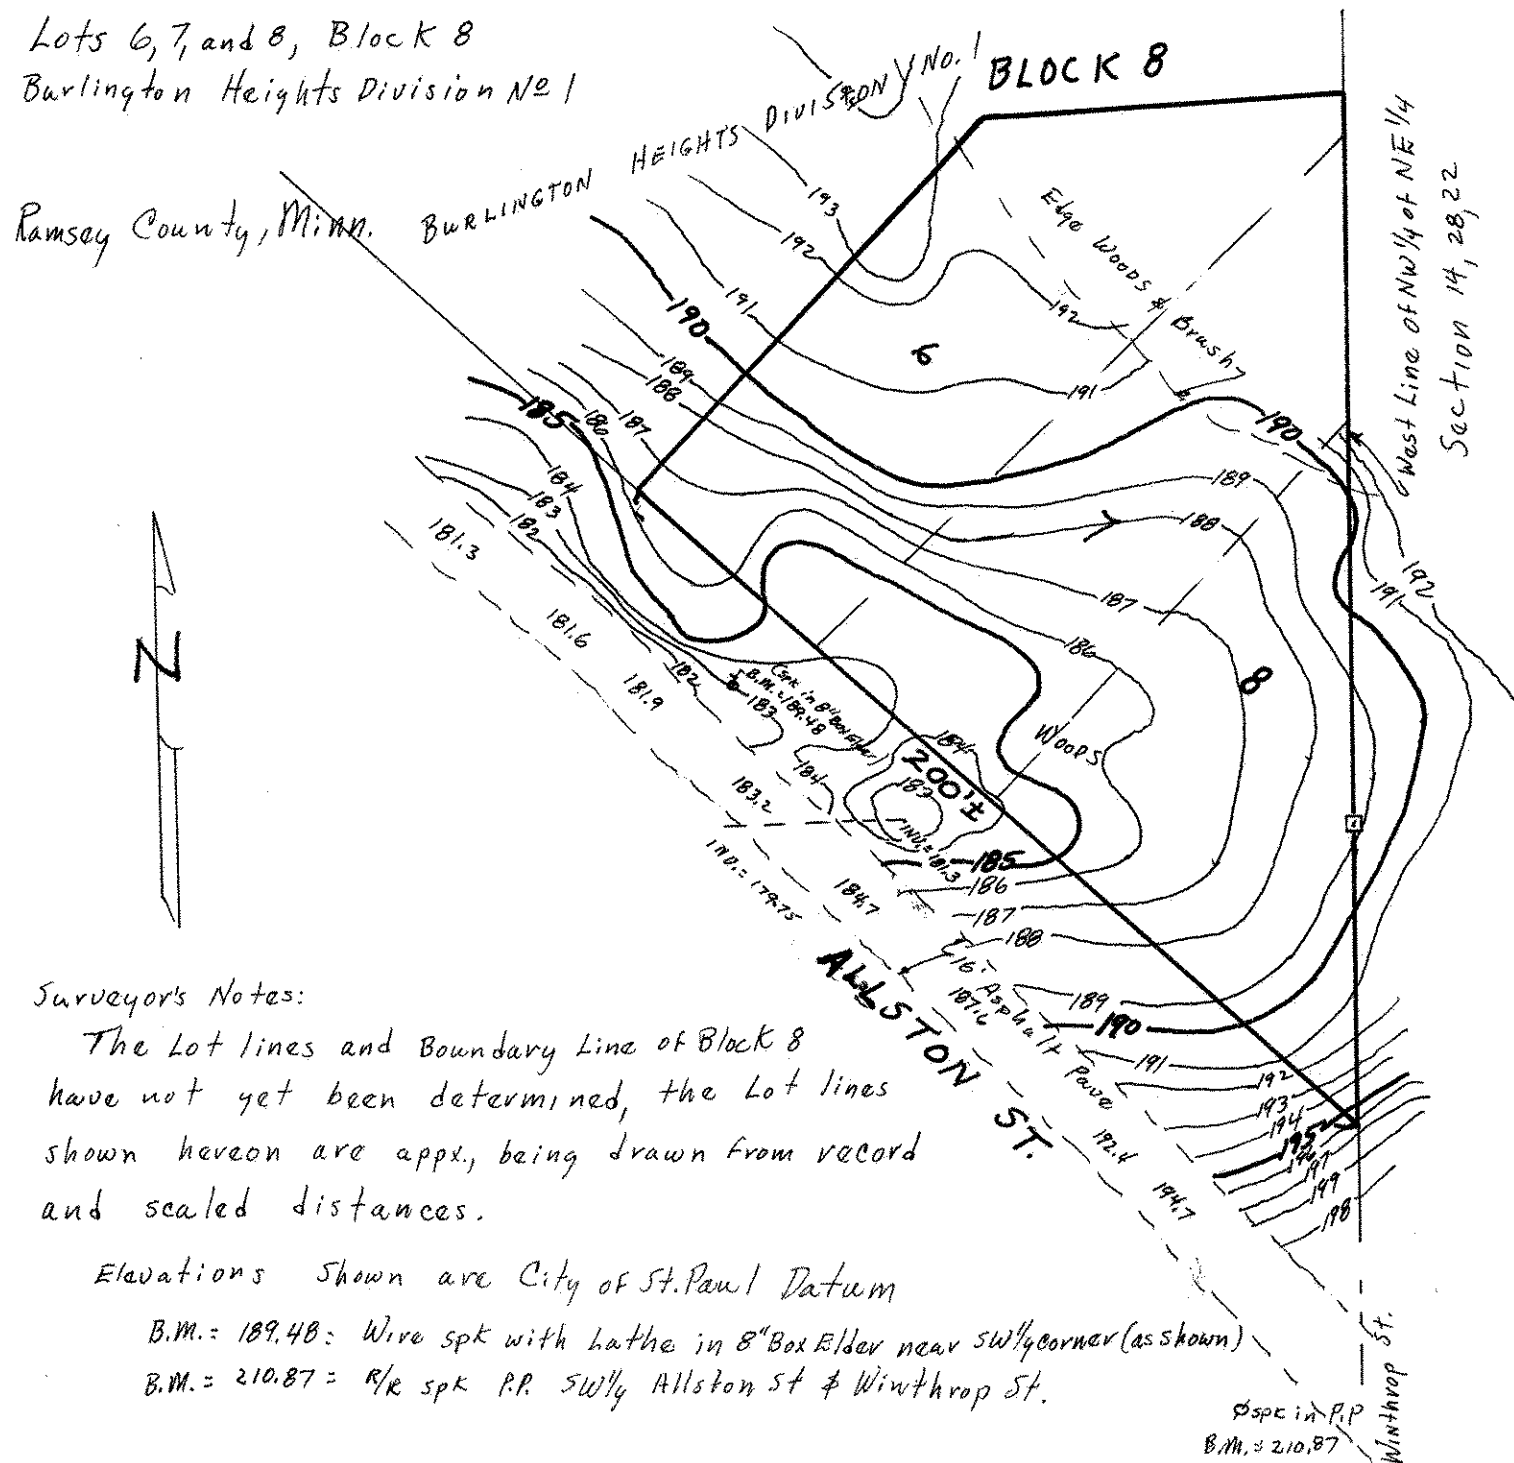 Lots 6, 7, and 8, Block 8
Burlington Heights Division No 1
Ramsey County, Minn.
BURLINGTON HEIGHTS DIVISION NO. 1
BLOCK 8
West Line of NW 1/4 of NE 1/4
Section 14, 28, 22
Edge Woods & Brush
193
192
191
190
192
6
191
189
188
190
185
186
187
189
188
184
183
182
187
192
191
181.3
181.6
186
8
181.9
182
183
Spk in 8" Box Elder
B.M.=189.48
Woods
184
200'±
184
183
183.2
INV.=181.3
185
INV.=179.75
184.7
186
187
188
N
ALLSTON ST.
16' Asphalt Pave
187.6
189
190
191
192
193
194
195
196
197
199
198
192.4
194.7
Surveyor's Notes:
The Lot lines and Boundary Line of Block 8
have not yet been determined, the Lot lines
shown hereon are appx., being drawn from record
and scaled distances.
Elevations Shown are City of St. Paul Datum
B.M.= 189.48= Wire spk with Lathe in 8" Box Elder near SW'ly corner (as shown)
B.M.= 210.87= R/R spk P.P. SW'ly Allston St & Winthrop St.
Øspk in P.P
B.M.=210.87
Winthrop St.